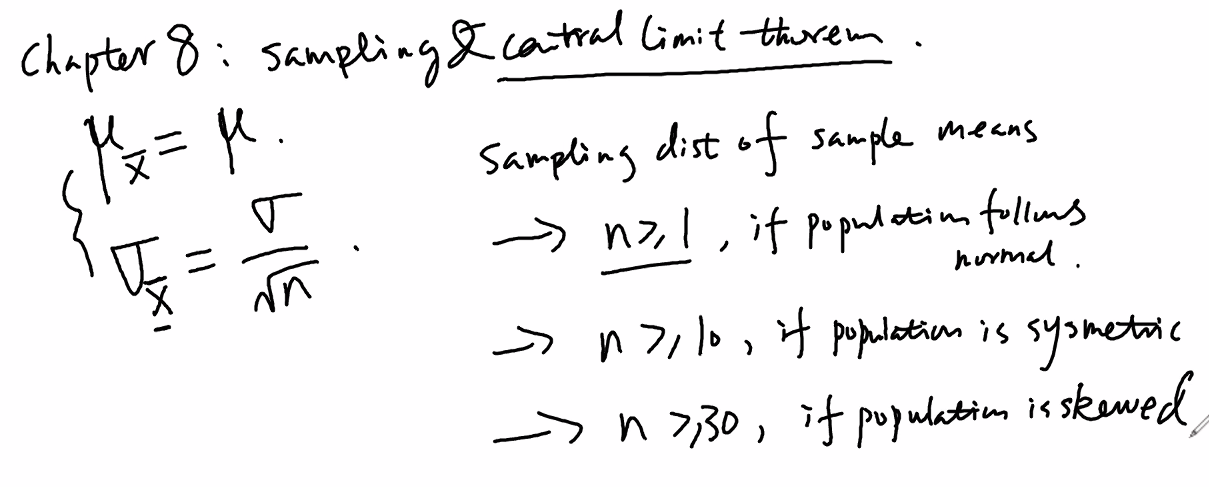 Chapter 8: sampling & central limit thorem.
μ_x̄ = μ.
σ_x̄ = σ/√n.
Sampling dist of sample means
→ n ≥ 1, if population follows
normal.
→ n ≥ 10, if population is sysmetric
→ n ≥ 30, if population is skewed